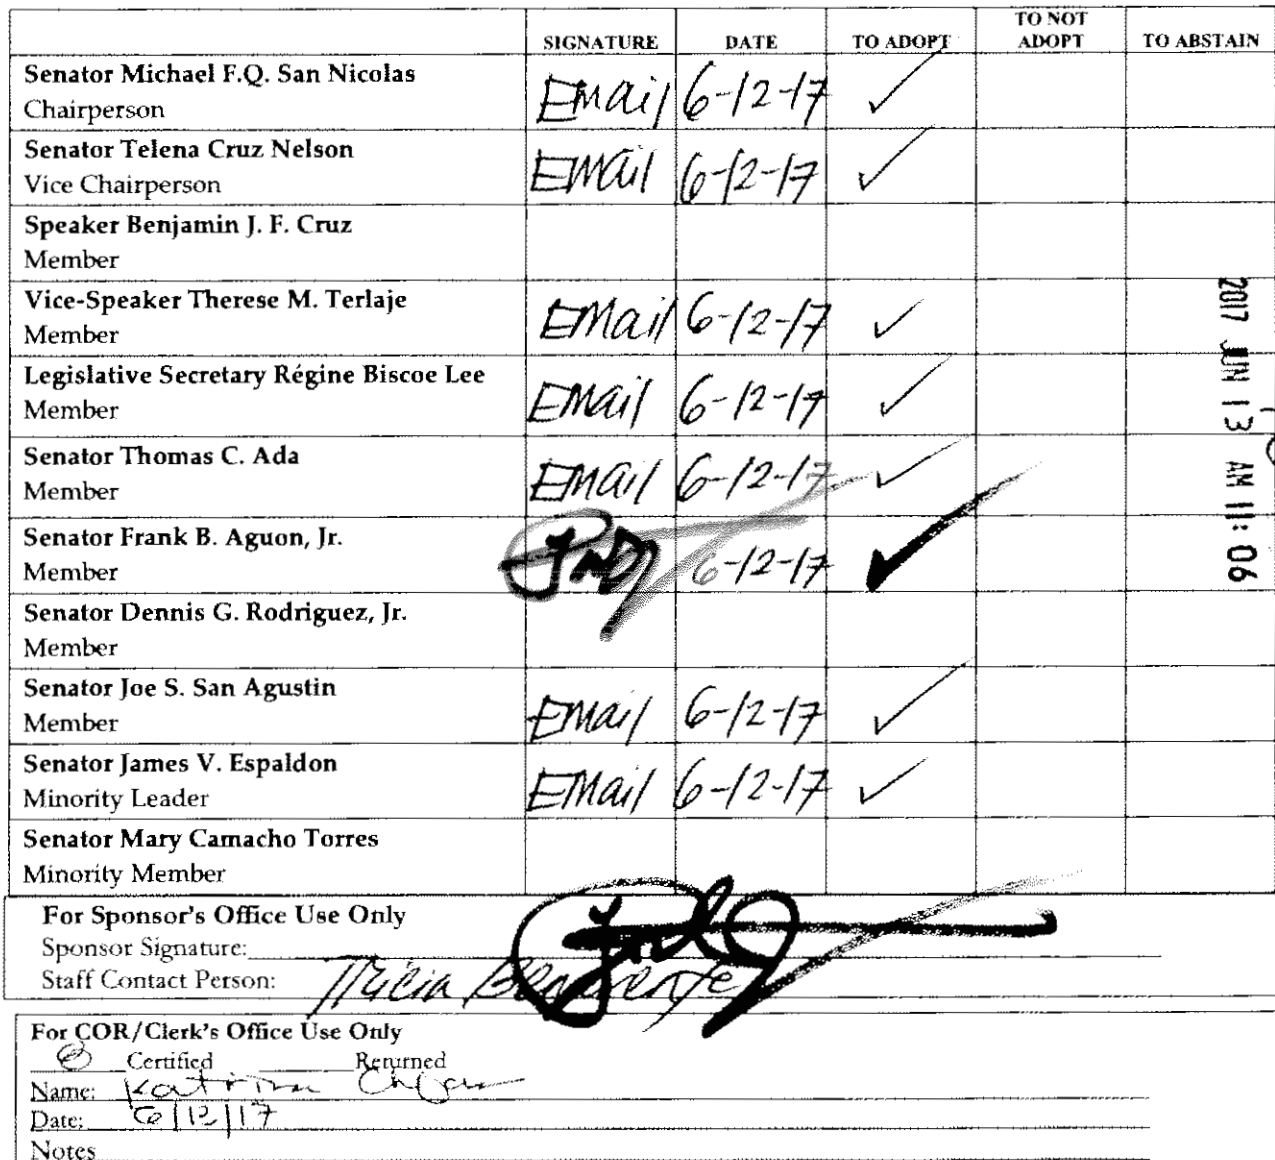 SIGNATURE DATE TO ADOPT TO NOT ADOPT TO ABSTAIN
Senator Michael F.Q. San Nicolas
Chairperson
EMail 6-12-17 ✓
Senator Telena Cruz Nelson
Vice Chairperson
EMail 6-12-17 ✓
Speaker Benjamin J. F. Cruz
Member
Vice-Speaker Therese M. Terlaje
Member
EMail 6-12-17 ✓
Legislative Secretary Régine Biscoe Lee
Member
EMail 6-12-17 ✓
Senator Thomas C. Ada
Member
EMail 6-12-17 ✓
Senator Frank B. Aguon, Jr.
Member
6-12-17 ✓
Senator Dennis G. Rodriguez, Jr.
Member
Senator Joe S. San Agustin
Member
EMail 6-12-17 ✓
Senator James V. Espaldon
Minority Leader
EMail 6-12-17 ✓
Senator Mary Camacho Torres
Minority Member
2017 JUN 13 AM 11: 06
For Sponsor's Office Use Only
Sponsor Signature:
Staff Contact Person: Tricia Benavente
For COR/Clerk's Office Use Only
Certified Returned
Name: Katrina
Date: 6/13/17
Notes